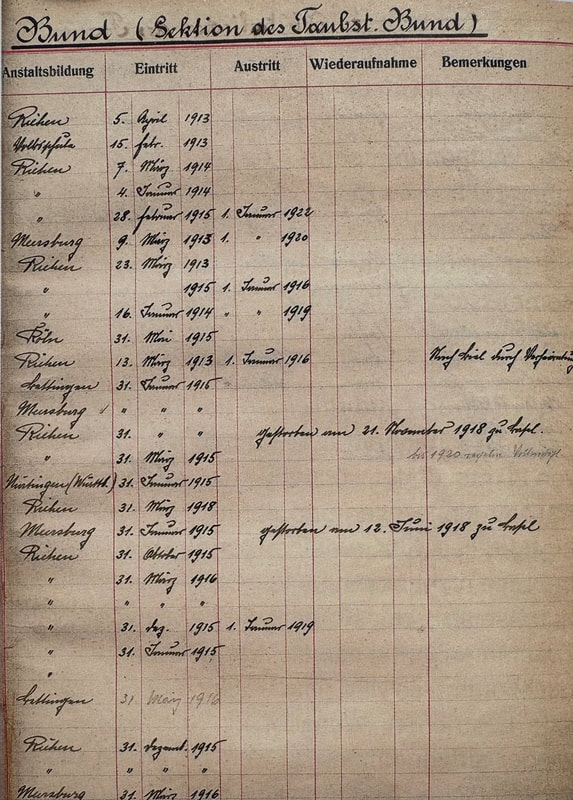 Bund (Sektion des Taubst. Bund)
Anstaltsbildung Eintritt Austritt Wiederaufnahme Bemerkungen
Riehen 5. April 1913
Volksschule 15. Febr. 1913
Riehen 7. März 1914
" 4. Januar 1914
" 28. Februar 1915 1. Januar 1922
Meersburg 9. März 1913 1. " 1920
Riehen 23. März 1913
" 1915 1. Januar 1916
" 16. Januar 1914 " " 1919
Köln 31. Mai 1915
Riehen 13. März 1913 1. Januar 1916 Nach Biel durch
Bettingen 31. Januar 1915
Meersburg " " "
Riehen 31. " " gestorben am 21. November 1918 zu Basel.
" 31. März 1915 bis 1920
Nürtingen (Württb.) 31. Januar 1915
Riehen 31. März 1918
Meersburg 31. Januar 1915 gestorben am 12. Juni 1918 zu Basel
Riehen 31. Oktober 1915
" 31. März 1916
" " " "
" 31. Dez. 1915 1. Januar 1919
" 31. Januar 1915
"
Bettingen 31. März 1916
Riehen 31. Dezemb. 1915
" " " "
Meersburg 31. März 1916